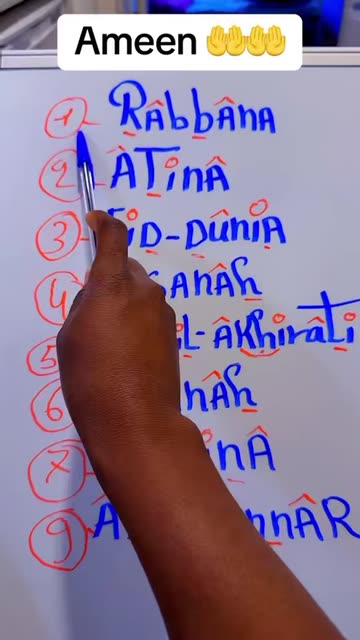 Ameen 🤲🤲
1 - Râbbâna
2 - ÂTinÂ
3 - iD-DûniA
4 SAnâh
5 il-âkhirâTi
6 nÂh
7 inÂ
9 - Â nnÂR